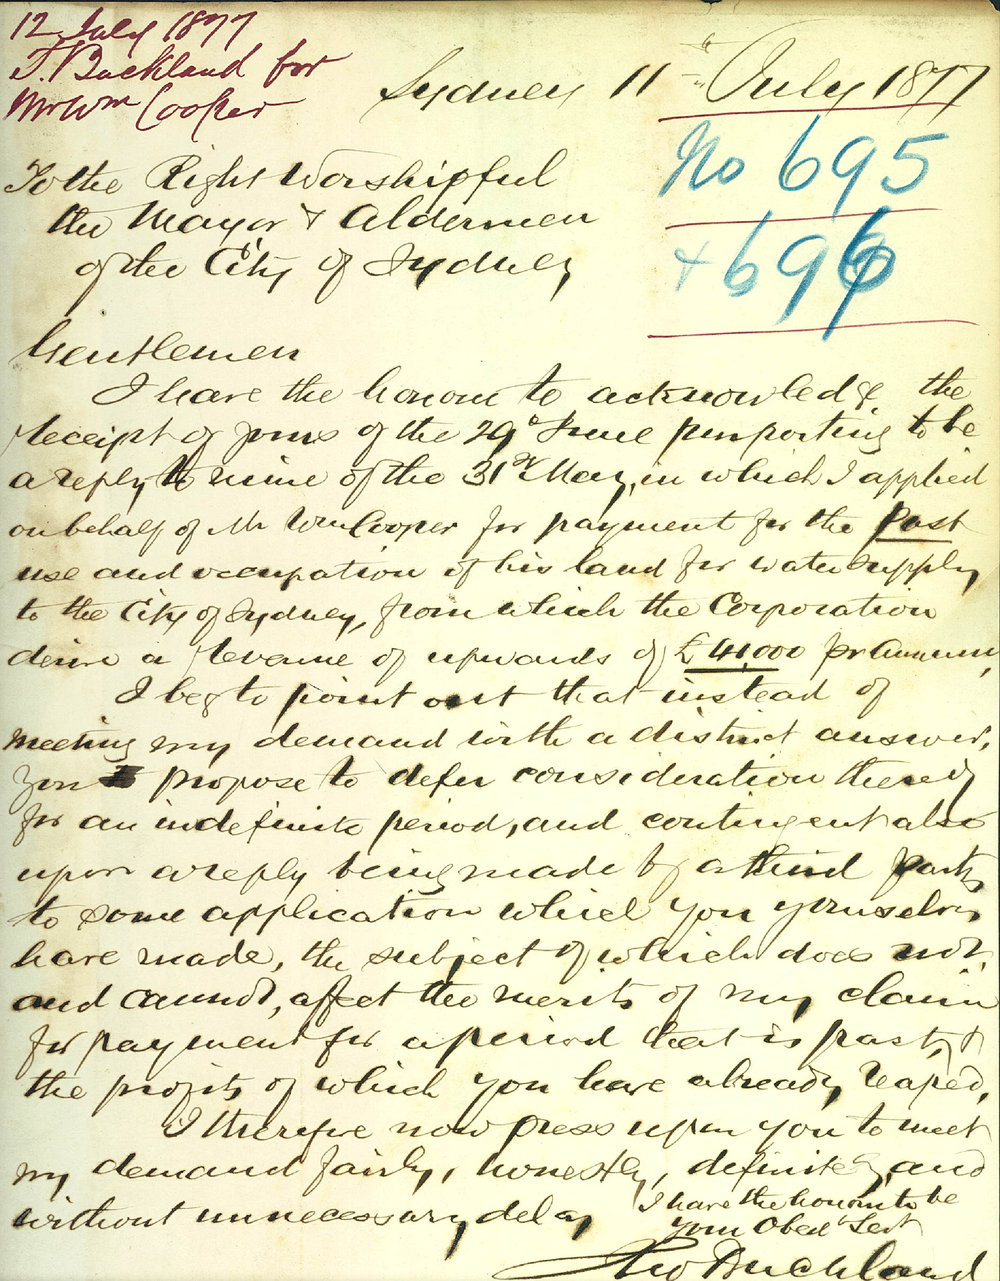 12 July 1877
T. Buckland for
Mr Wm Cooper
Sydney 11th July 1877
No 695
+ 696
To the Right Worshipful
the Mayor & Aldermen
of the City of Sydney
Gentlemen
I have the honour to acknowledge the
receipt of yours of the 29th June purporting to be
a reply to mine of the 31st May, in which I applied
on behalf of Mr Wm Cooper for payment for the past
use and occupation of his land for water supply
to the City of Sydney, from which the Corporation
derive a revenue of upwards of £41,000 pr annum,
I beg to point out that instead of
meeting my demand with a distinct answer,
you propose to defer consideration thereof
for an indefinite period, and contingent also
upon a reply being made by a third party
to some application which you yourselves
have made, the subject of which does not,
and cannot, affect the merits of my claim
for payment for a period that is past, &
the profits of which you have already reaped.
I therefore now press upon you to meet
my demand fairly, honestly, definitely, and
without unnecessary delay
I have the honour to be
your Obedt Servt
Buckland